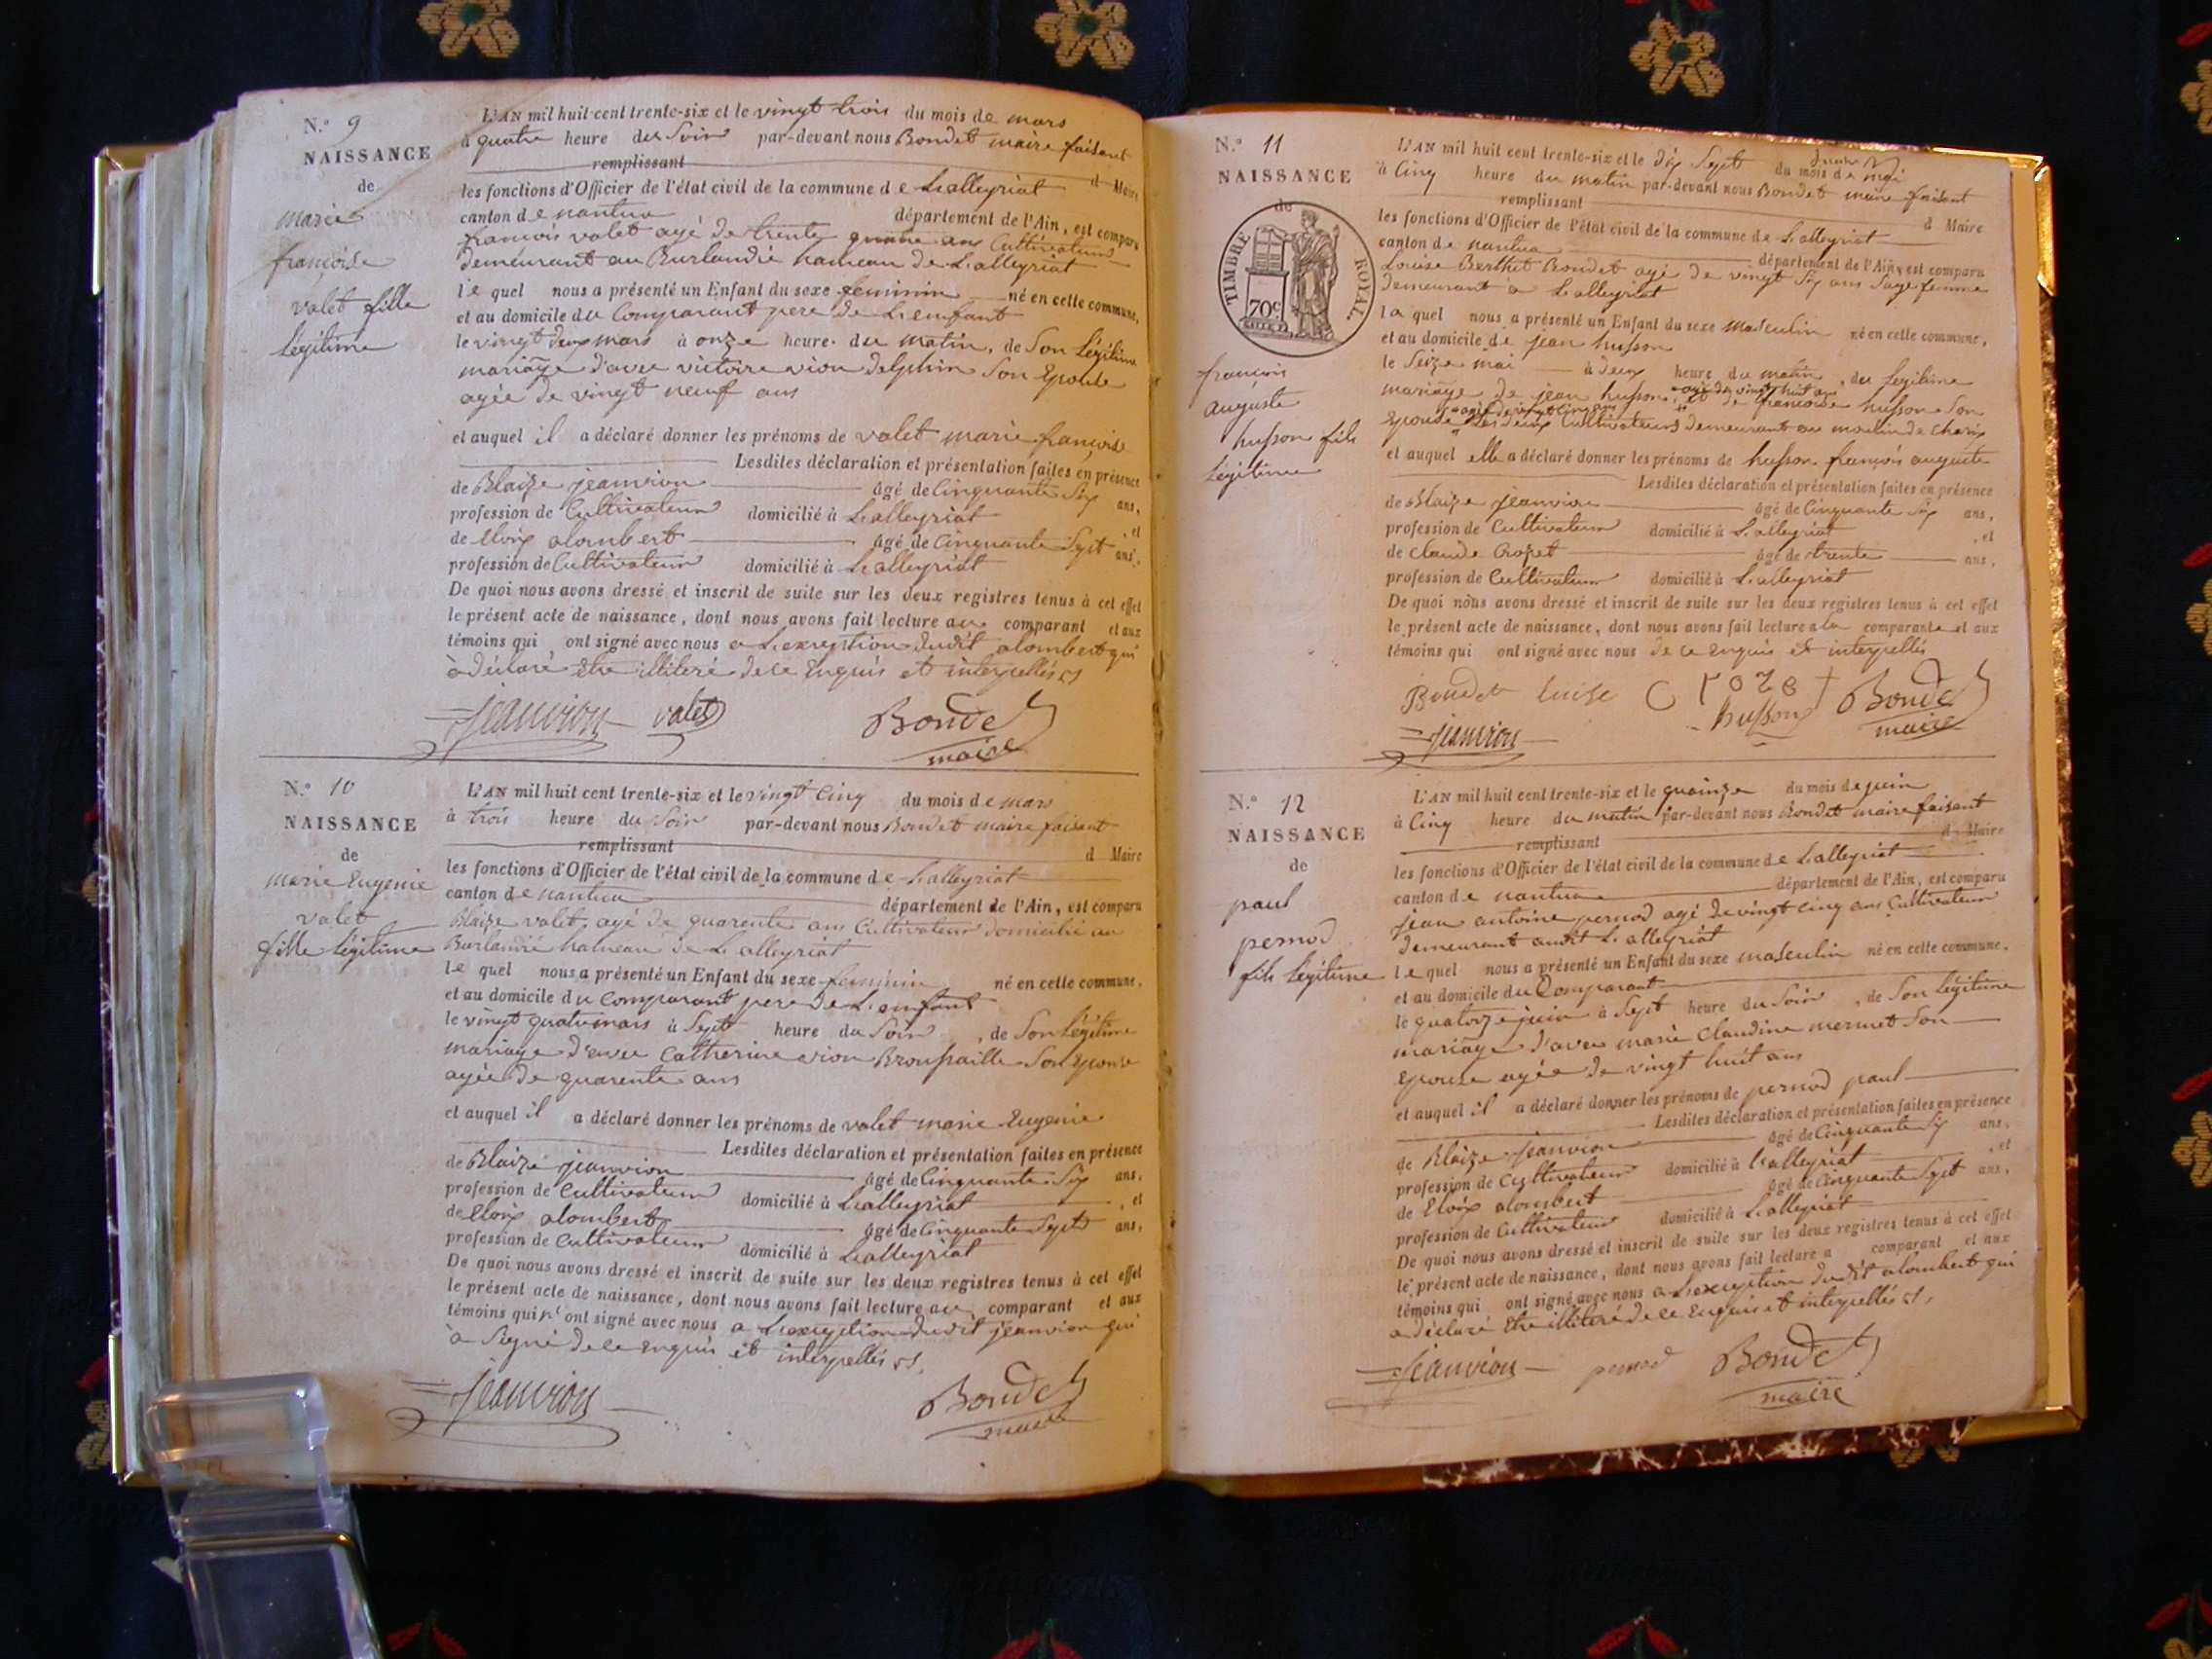 N.° 9
NAISSANCE
de
marie
françoise
valet fille
légitime
L'AN mil huit cent trente-six et le vingt trois du mois de mars
à quatre heure du Soir par-devant nous Bondet maire faisant
remplissant d Maire
les fonctions d'Officier de l'état civil de la commune de Lalleyriat
canton de nantua département de l'Ain, est comparu
françois valet agé de trente quatre ans Cultivateur
demeurant au Burlandié hameau de Lalleyriat
le quel nous a présenté un Enfant du sexe feminin né en cette commune,
et au domicile du Comparant pere de Lenfant
le vingt deux mars à onze heure du matin, de Son Légitime
mariage d'avec victoire vion Delphin Son Epouse
agée de vingt neuf ans
et auquel il a déclaré donner les prénoms de valet marie françoise
Lesdites déclaration et présentation faites en présence
de Blaize jeanvion âgé de Cinquante Six ans,
profession de Cultivateur domicilié à Lalleyriat , et
de Eloix alombert âgé de Cinquante Sept ans,
profession de Cultivateur domicilié à Lalleyriat
De quoi nous avons dressé et inscrit de suite sur les deux registres tenus à cet effet
le présent acte de naissance, dont nous avons fait lecture au comparant et aux
témoins qui ont signé avec nous a Lexception dudit alombert qui
à déclaré être illiteré de ce Enquis et interpellés
jeanvion valet Bondet
maire
N.° 10
NAISSANCE
de
marie Eugenie
valet
fille légitime
L'AN mil huit cent trente-six et le vingt Cinq du mois de mars
à trois heure du Soir par-devant nous Bondet maire faisant
remplissant d Maire
les fonctions d'Officier de l'état civil de la commune de Lalleyriat
canton de nantua département de l'Ain, est comparu
Blaize valet agé de quarente ans Cultivateur domicilié au
Burlandié hameau de Lalleyriat
le quel nous a présenté un Enfant du sexe feminin né en cette commune,
et au domicile du Comparant pere de Lenfant
le vingt quatre mars à Sept heure du Soir , de Son Légitime
mariage d'avec Catherine vion Broussaille Son Epouse
agée de quarente ans
et auquel il a déclaré donner les prénoms de valet marie Eugenie
Lesdites déclaration et présentation faites en présence
de Blaize jeanvion âgé de Cinquante Six ans,
profession de Cultivateur domicilié à Lalleyriat , et
de Eloix alombert âgé de Cinquante Sept ans,
profession de Cultivateur domicilié à Lalleyriat
De quoi nous avons dressé et inscrit de suite sur les deux registres tenus à cet effet
le présent acte de naissance, dont nous avons fait lecture au comparant et aux
témoins qui n'ont signé avec nous a Lexception dudit jeanvion qui
à Signé de ce Enquis et interpellés
jeanvion Bondet
maire
N.° 11
NAISSANCE
de
TIMBRE ROYAL.
70c
françois
auguste
husson fils
Légitime
L'AN mil huit cent trente-six et le dix Sept du mois de mai
à Cinq heure du matin par-devant nous Bondet maire faisant
remplissant d Maire
les fonctions d'Officier de l'état civil de la commune de Lalleyriat
canton de nantua département de l'Ain, est comparu
Louise Berthet Bondet agé de vingt Six ans Sage femme
demeurant a Lalleyriat
la quel nous a présenté un Enfant du sexe masculin né en cette commune,
et au domicile de jean husson
le Seize mai à deux heure du matin , du Légitime
mariage de jean husson agé de vingt huit ans et de francoise husson Son
Epouse agée de vingt Cinq ans Les deux Cultivateurs demeurant au moulin de Charix
et auquel elle a déclaré donner les prénoms de husson françois auguste
Lesdites déclaration et présentation faites en présence
de Blaize jeanvion âgé de Cinquante Six ans,
profession de Cultivateur domicilié à Lalleyriat , et
de Claude Crozet âgé de trente ans,
profession de Cultivateur domicilié à Lalleyriat
De quoi nous avons dressé et inscrit de suite sur les deux registres tenus à cet effet
le présent acte de naissance, dont nous avons fait lecture a la comparante et aux
témoins qui ont signé avec nous de ce Enquis et interpellés
Bondet luise Croze t Bondet
husson maire
jeanvion
N.° 12
NAISSANCE
de
paul
pernod
fils légitime
L'AN mil huit cent trente-six et le quainze du mois de juin
à Cinq heure du matin par-devant nous Bondet maire faisant
remplissant d Maire
les fonctions d'Officier de l'état civil de la commune de Lalleyriat
canton de nantua département de l'Ain, est comparu
jean antoine pernod agé de vingt cinq ans Cultivateur
demeurant audit Lalleyriat
le quel nous a présenté un Enfant du sexe masculin né en cette commune,
et au domicile du Comparant
le quatorze juin à Sept heure du Soir , de Son Légitime
mariage d'avec marie Claudine mermet Son
Epouse agée de vingt huit ans
et auquel il a déclaré donner les prénoms de pernod paul
Lesdites déclaration et présentation faites en présence
de Blaize jeanvion âgé de Cinquante Six ans,
profession de Cultivateur domicilié à Lalleyriat , et
de Eloix alombert âgé de Cinquante Sept ans,
profession de Cultivateur domicilié à Lalleyriat
De quoi nous avons dressé et inscrit de suite sur les deux registres tenus à cet effet
le présent acte de naissance, dont nous avons fait lecture a comparant et aux
témoins qui ont signé avec nous a Lexception dudit alombert qui
a déclaré être illiteré de ce Enquis et interpellés
jeanvion pernod Bondet
maire